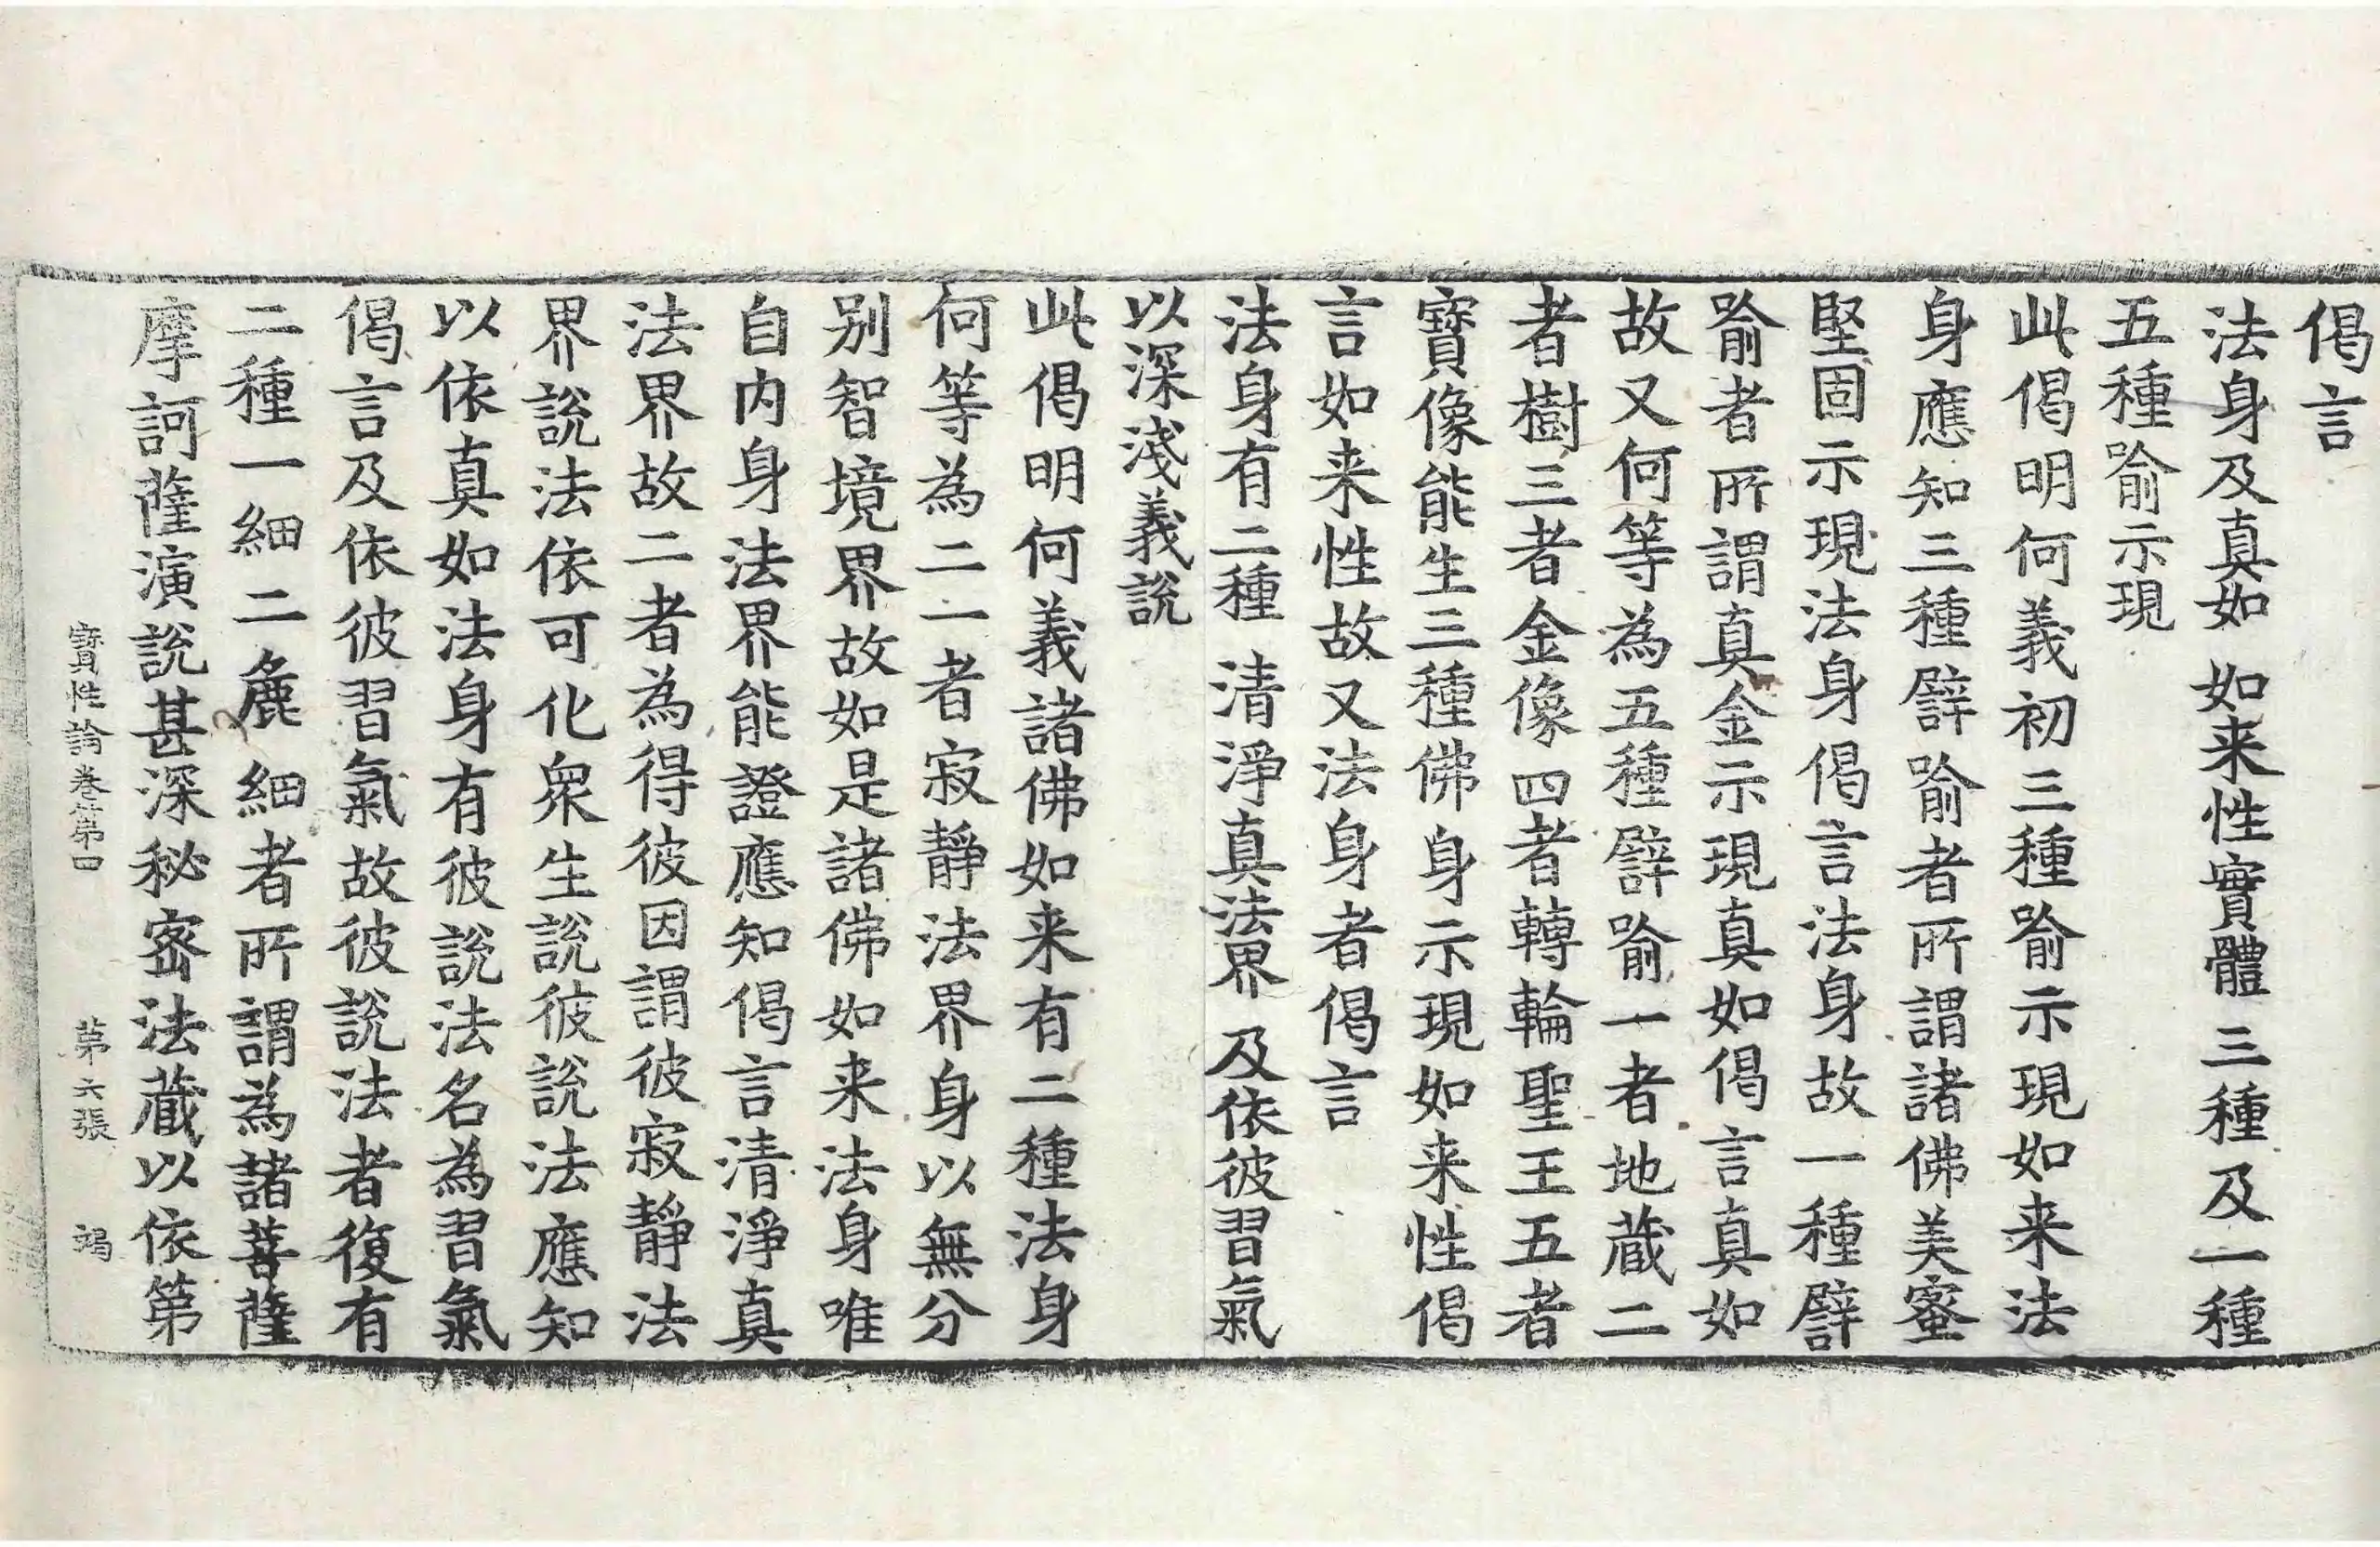 偈言
法身及真如　如来性實體　三種及一種
五種喻示現
此偈明何義初三種喻示現如来法
身應知三種譬喻者所謂諸佛美蜜
堅固示現法身偈言法身故一種譬
喻者所謂真金示現真如偈言真如
故又何等為五種譬喻一者地蔵二
者樹三者金像四者轉輪聖王五者
寶像能生三種佛身示現如来性偈
言如来性故又法身者偈言
法身有二種　清淨真法界　及依彼習氣
以深淺義說
此偈明何義諸佛如来有二種法身
何等為二一者寂靜法界身以無分
别智境界故如是諸佛如来法身唯
自内身法界能證應知偈言清淨真
法界故二者為得彼因謂彼寂靜法
界說法依可化衆生說彼說法應知
以依真如法身有彼說法名為習氣
偈言及依彼習氣故彼說法者復有
二種一細二麁細者所謂為諸菩薩
摩訶薩演說甚深秘密法蔵以依第
寶性論卷第四　第六張　竭